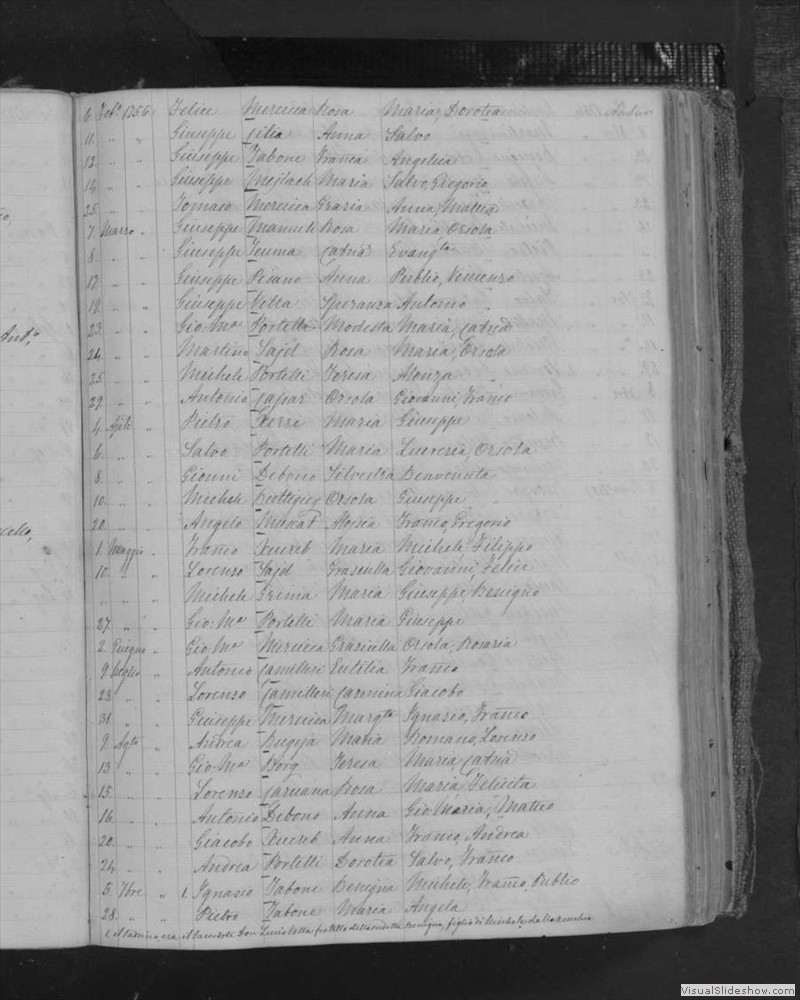 6. Feb.o 1756 Felice Mercieca Rosa Maria Dorotea
11. " " Giuseppe Cilia Anna Salvo
12. " " Giuseppe Tabone Franca Angelica
14. " " Giuseppe Mejlach Maria Salvo, Gregorio
25. " " Tomaso Mercieca Grazia Anna, Mattea
7. Marzo " Giuseppe Rosa Maria Orsola
8. " " Giuseppe Teuma Catnā Evangta
17. " " Giuseppe Pisano Anna Publio, Vincenzo
19. " " Giuseppe Vella Speranza Antonio
23. " " Gio: Ma Portelli Modesta Maria, Catnā
24. " " Martino Sajd Rosa Maria, Orsola
25. " " Michele Portelli Teresa Alonza
29. " " Antonio Caspar Orsola Giovanni, Franco
4. Aple " Pietro Xerri Maria Giuseppe
6. " " Salvo Portelli Maria Lucrezia, Orsola
8. " " Gionni Debono Silvestra Benvenuta
10. " " Michele Buttegieg Orsola Giuseppe
20. " " Angelo Aloisia Franco, Gregorio
1. Maggio " Franco Xuereb Maria Michele, Filippo
10. " " Lorenzo Sajd Graziulla Giovanni, Felice
" " " Michele Grima Maria Giuseppe Benigno
27. " " Gio: Ma Portelli Maria Giuseppe
2. Giugno " Gio: Ma Mercieca Graziella Orsola, Rosaria
9. Luglio " Antonio Camilleri Eutilia Franco
23. " " Lorenzo Camilleri Carmina Giacobo
31. " " Giuseppe Mercieca Margta Ignazio, Franco
9. Agto " Andrea Bugeja Maria Romano, Lorenzo
13. " " Gio: Ma Borg Teresa Maria, Catnā
15. " " Lorenzo Caruana Rosa Maria Felicita
16. " " Antonio Debono Anna Gio Maria, Matteo
20. " " Giacobo Xuereb Anna Franco, Andrea
24. " " Andrea Portelli Dorotea Salvo, Franco
5. 7bre " 1. Ignazio Tabone Benigna Michele, Franco, Publio
28. " " Pietro Tabone Maria Angela
1. Il Padrino era il Sacerdote Don Luis Vella fratello della Benigna, figlio di Michele dalla
VisualSlideshow.com